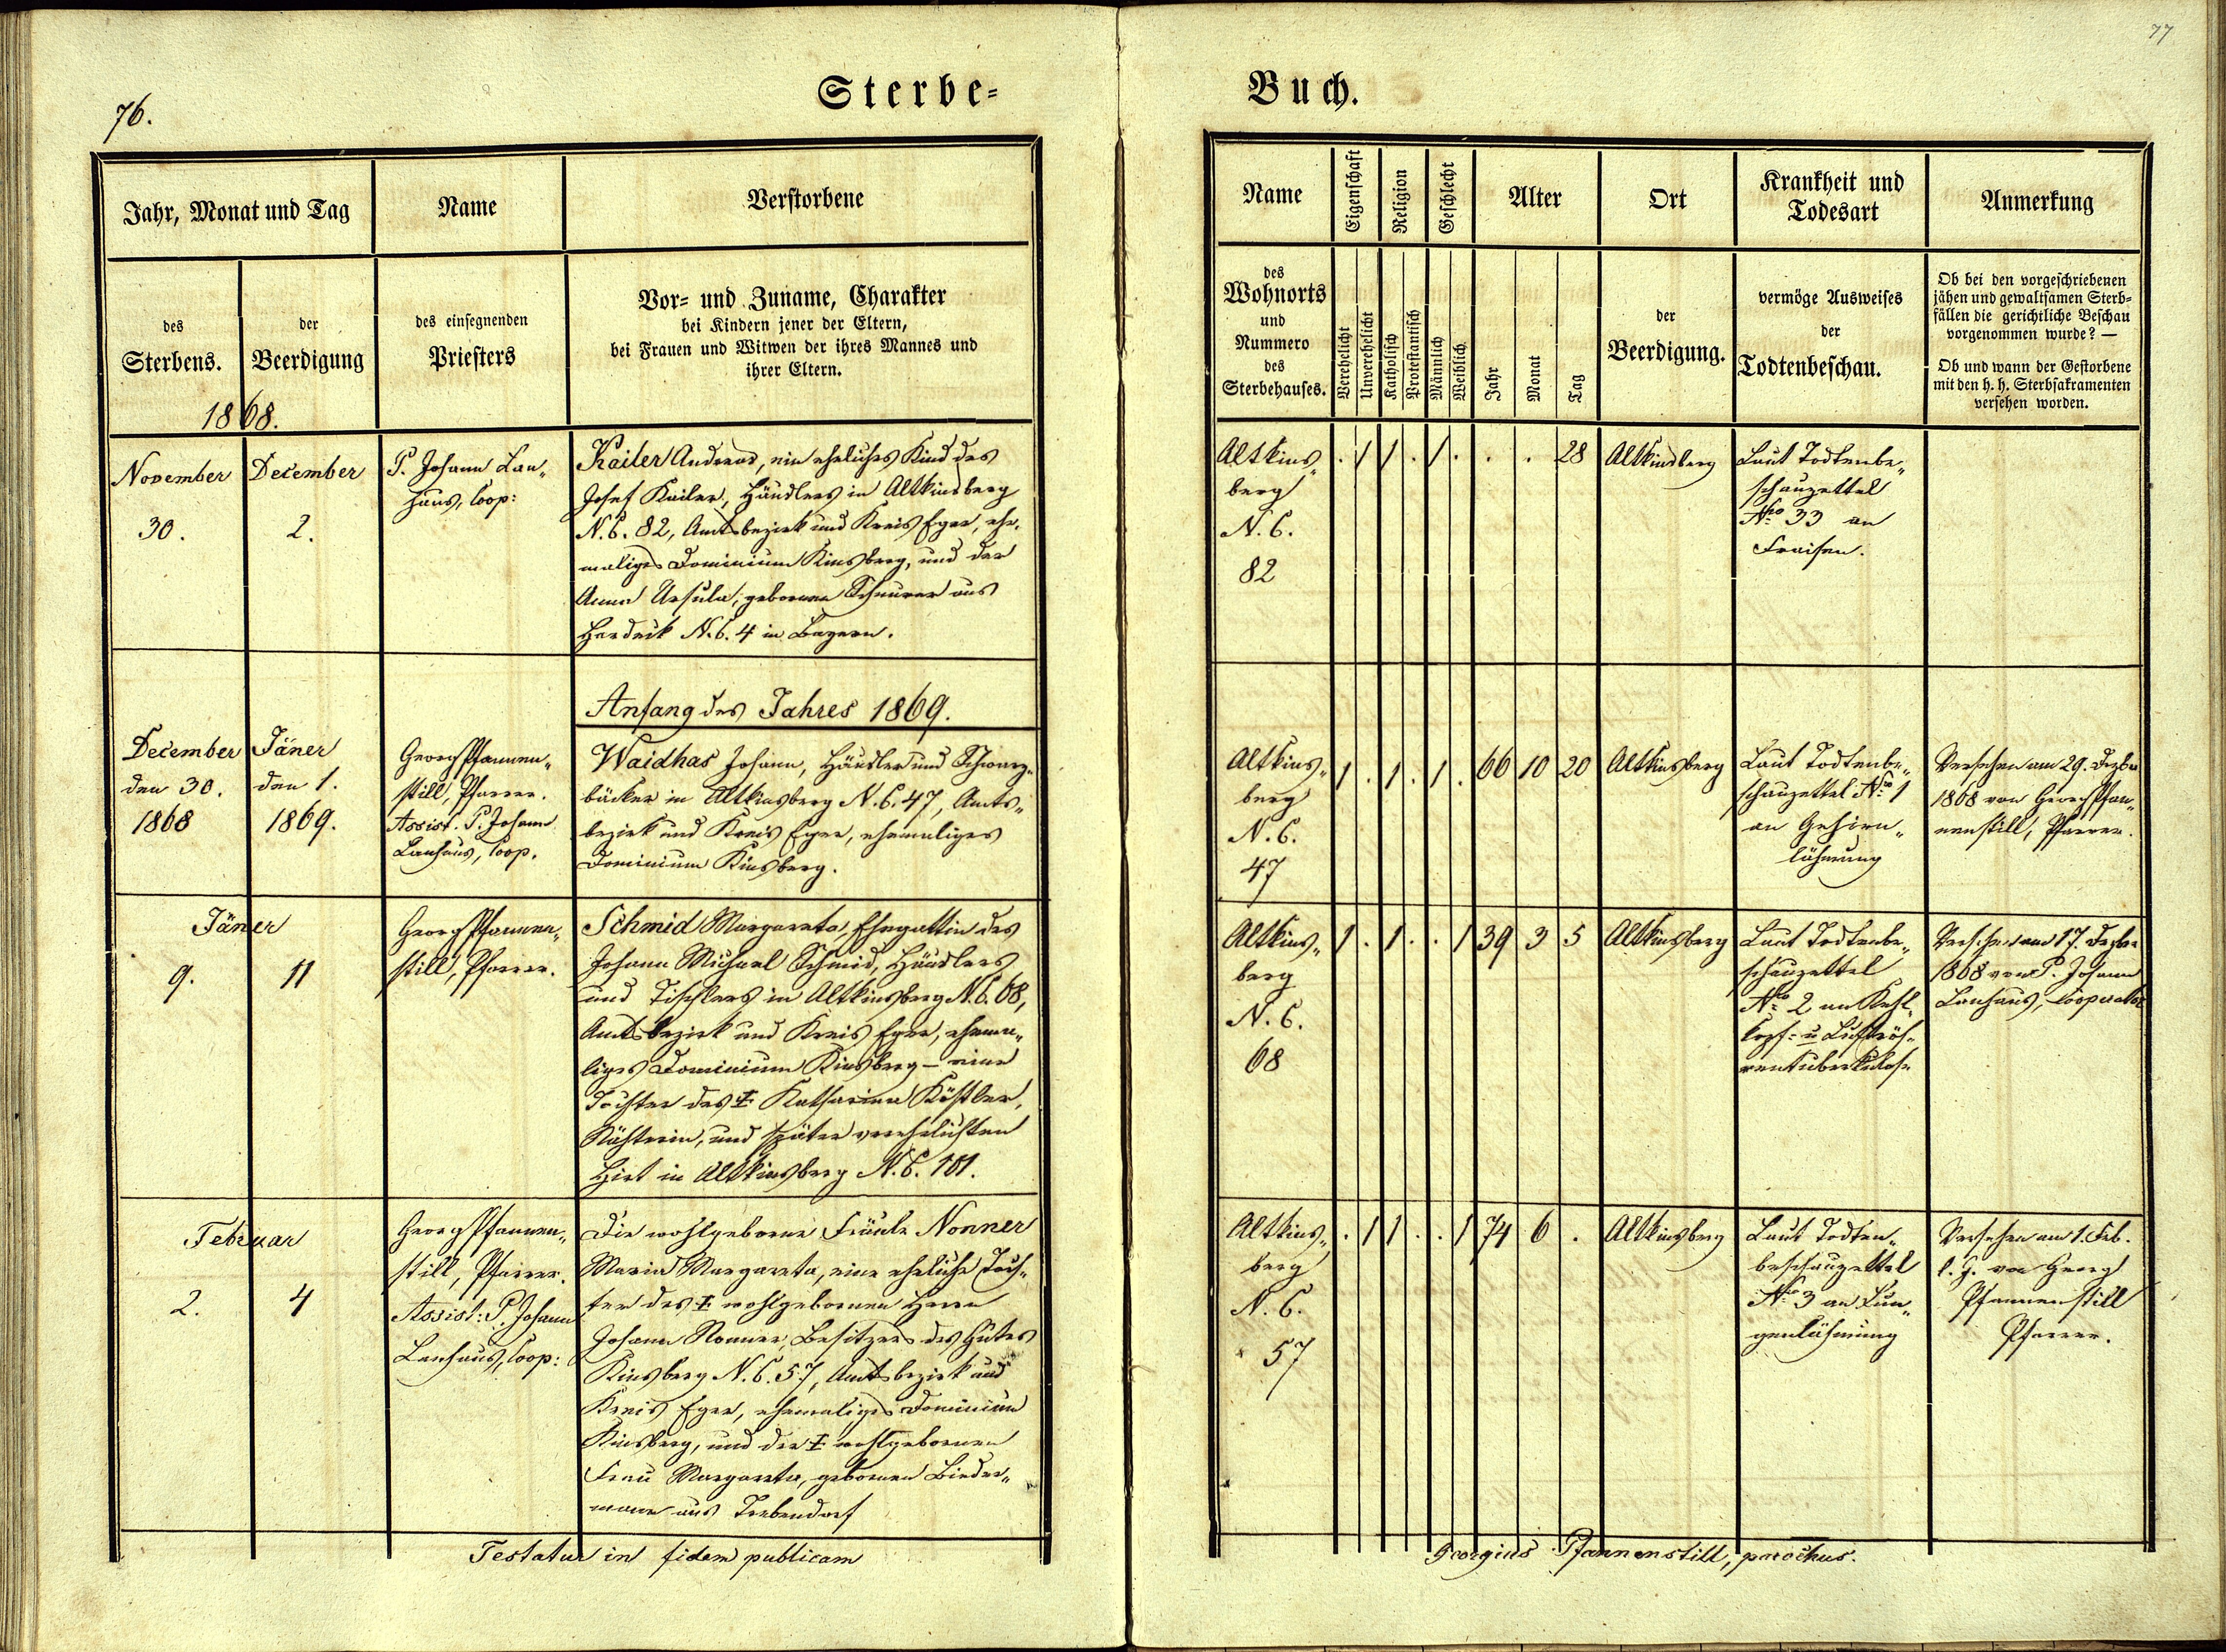 76.
Sterbe-
Jahr, Monat und Tag
Name
Verstorbene
des
Sterbens.
der
Beerdigung
des einsegnenden
Priesters
Vor- und Zuname, Charakter
bei Kindern jener der Eltern,
bei Frauen und Witwen der ihres Mannes und
ihrer Eltern.
1868.
November
30.
December
2.
P. Johann Lan„
haus, Coop:
Kailer Andreas, ein eheliches Kind des
Josef Kailer, Häuslers in Altkinsberg
N.C. 82, Amtsbezirk und Kreis Eger, ehe„
maliges Dominium Kinsberg, und der
Anna Ursula, gebornen Scheurer aus
Hardeck N.C. 4 in Bayern.
Anfang des Jahres 1869.
December
den 30.
1868
Jäner
den 1.
1869.
Georg Pfannen„
still, Pfarrer.
Assist. P. Johann
Lanhaus, Coop.
Waidhas Johann, Häusler und Schwarz„
bäcker in Altkinsberg N.C. 47, Amts„
bezirk und Kreis Eger, ehemaliges
Dominium Kinsberg.
Jäner
9.
11
Georg Pfannen„
still, Pfarrer.
Schmid Margareta, Ehegattin des
Johann Michael Schmid, Häuslers
und Tischlers in Altkinsberg N.C. 68,
Amtsbezirk und Kreis Eger, ehema„
liges Dominium Kinsberg – eine
Tochter der ‡ Katharina Köstler,
Nähterin, und später verehelichten
Hirt in Altkinsberg N.C. 101.
Februar
2.
4
Georg Pfannen„
still, Pfarrer.
Assist: P. Johann
Lanhaus, Coop:
Die wohlgeborne Fräule Nonner
Maria Margareta, eine eheliche Toch„
ter des ‡ wohlgebornen Herrn
Johann Nonner, Besitzers des Gutes
Kinsberg N.C. 57, Amtsbezirk und
Kreis Eger, ehemaliges Dominium
Kinsberg, und der ‡ wohlgebornen
Frau Margareta, gebornen Bieder„
mann aus Trebendorf
Testatur in fidem publicam
77
Buch.
Name
Eigenschaft
Religion
Geschlecht
Alter
Ort
Krankheit und
Todesart
Anmerkung
des
Wohnorts
und
Nummero
des
Sterbehauses.
Verehelicht
Unverehelicht
Katholisch
Protestantisch
Männlich
Weiblich
Jahr
Monat
Tag
der
Beerdigung.
vermöge Ausweises
der
Todtenbeschau.
Ob bei den vorgeschriebenen
jähen und gewaltsamen Sterb-
fällen die gerichtliche Beschau
vorgenommen wurde? —
Ob und wann der Gestorbene
mit den h. h. Sterbsakramenten
versehen worden.
Altkins„
berg
N.C.
82
. 1 1 . 1 . . . 28
Altkinsberg
Laut Todtenbe„
schauzettel
Nro 33 an
Fraisen.
Altkins„
berg
N.C.
47
1 . 1 . 1 . 66 10 20
Altkinsberg
Laut Todtenbe„
schauzettel Nro 1
an Gehirn„
lähmung
Versehen am 29. Dezber
1868 von Georg Pfan„
nenstill, Pfarrer.
Altkins„
berg
N.C.
68
1 . 1 . . 1 39 3 5
Altkinsberg
Laut Todtenbe„
schauzettel
Nro 2 an Kehl„
kopf- u Luftröh„
rentuberkulose
Versehen am 17. Dezber
1868 von P. Johann
Lanhaus, Cooperator
Altkins„
berg
N.C.
57
. 1 1 . . 1 74 6 .
Altkinsberg
Laut Todten„
beschauzettel
Nro 3 an Lun„
genlähmung
Versehen am 1. Feb.
l. J. von Georg
Pfannenstill
Pfarrer.
Georgius Pfannenstill, parochus.